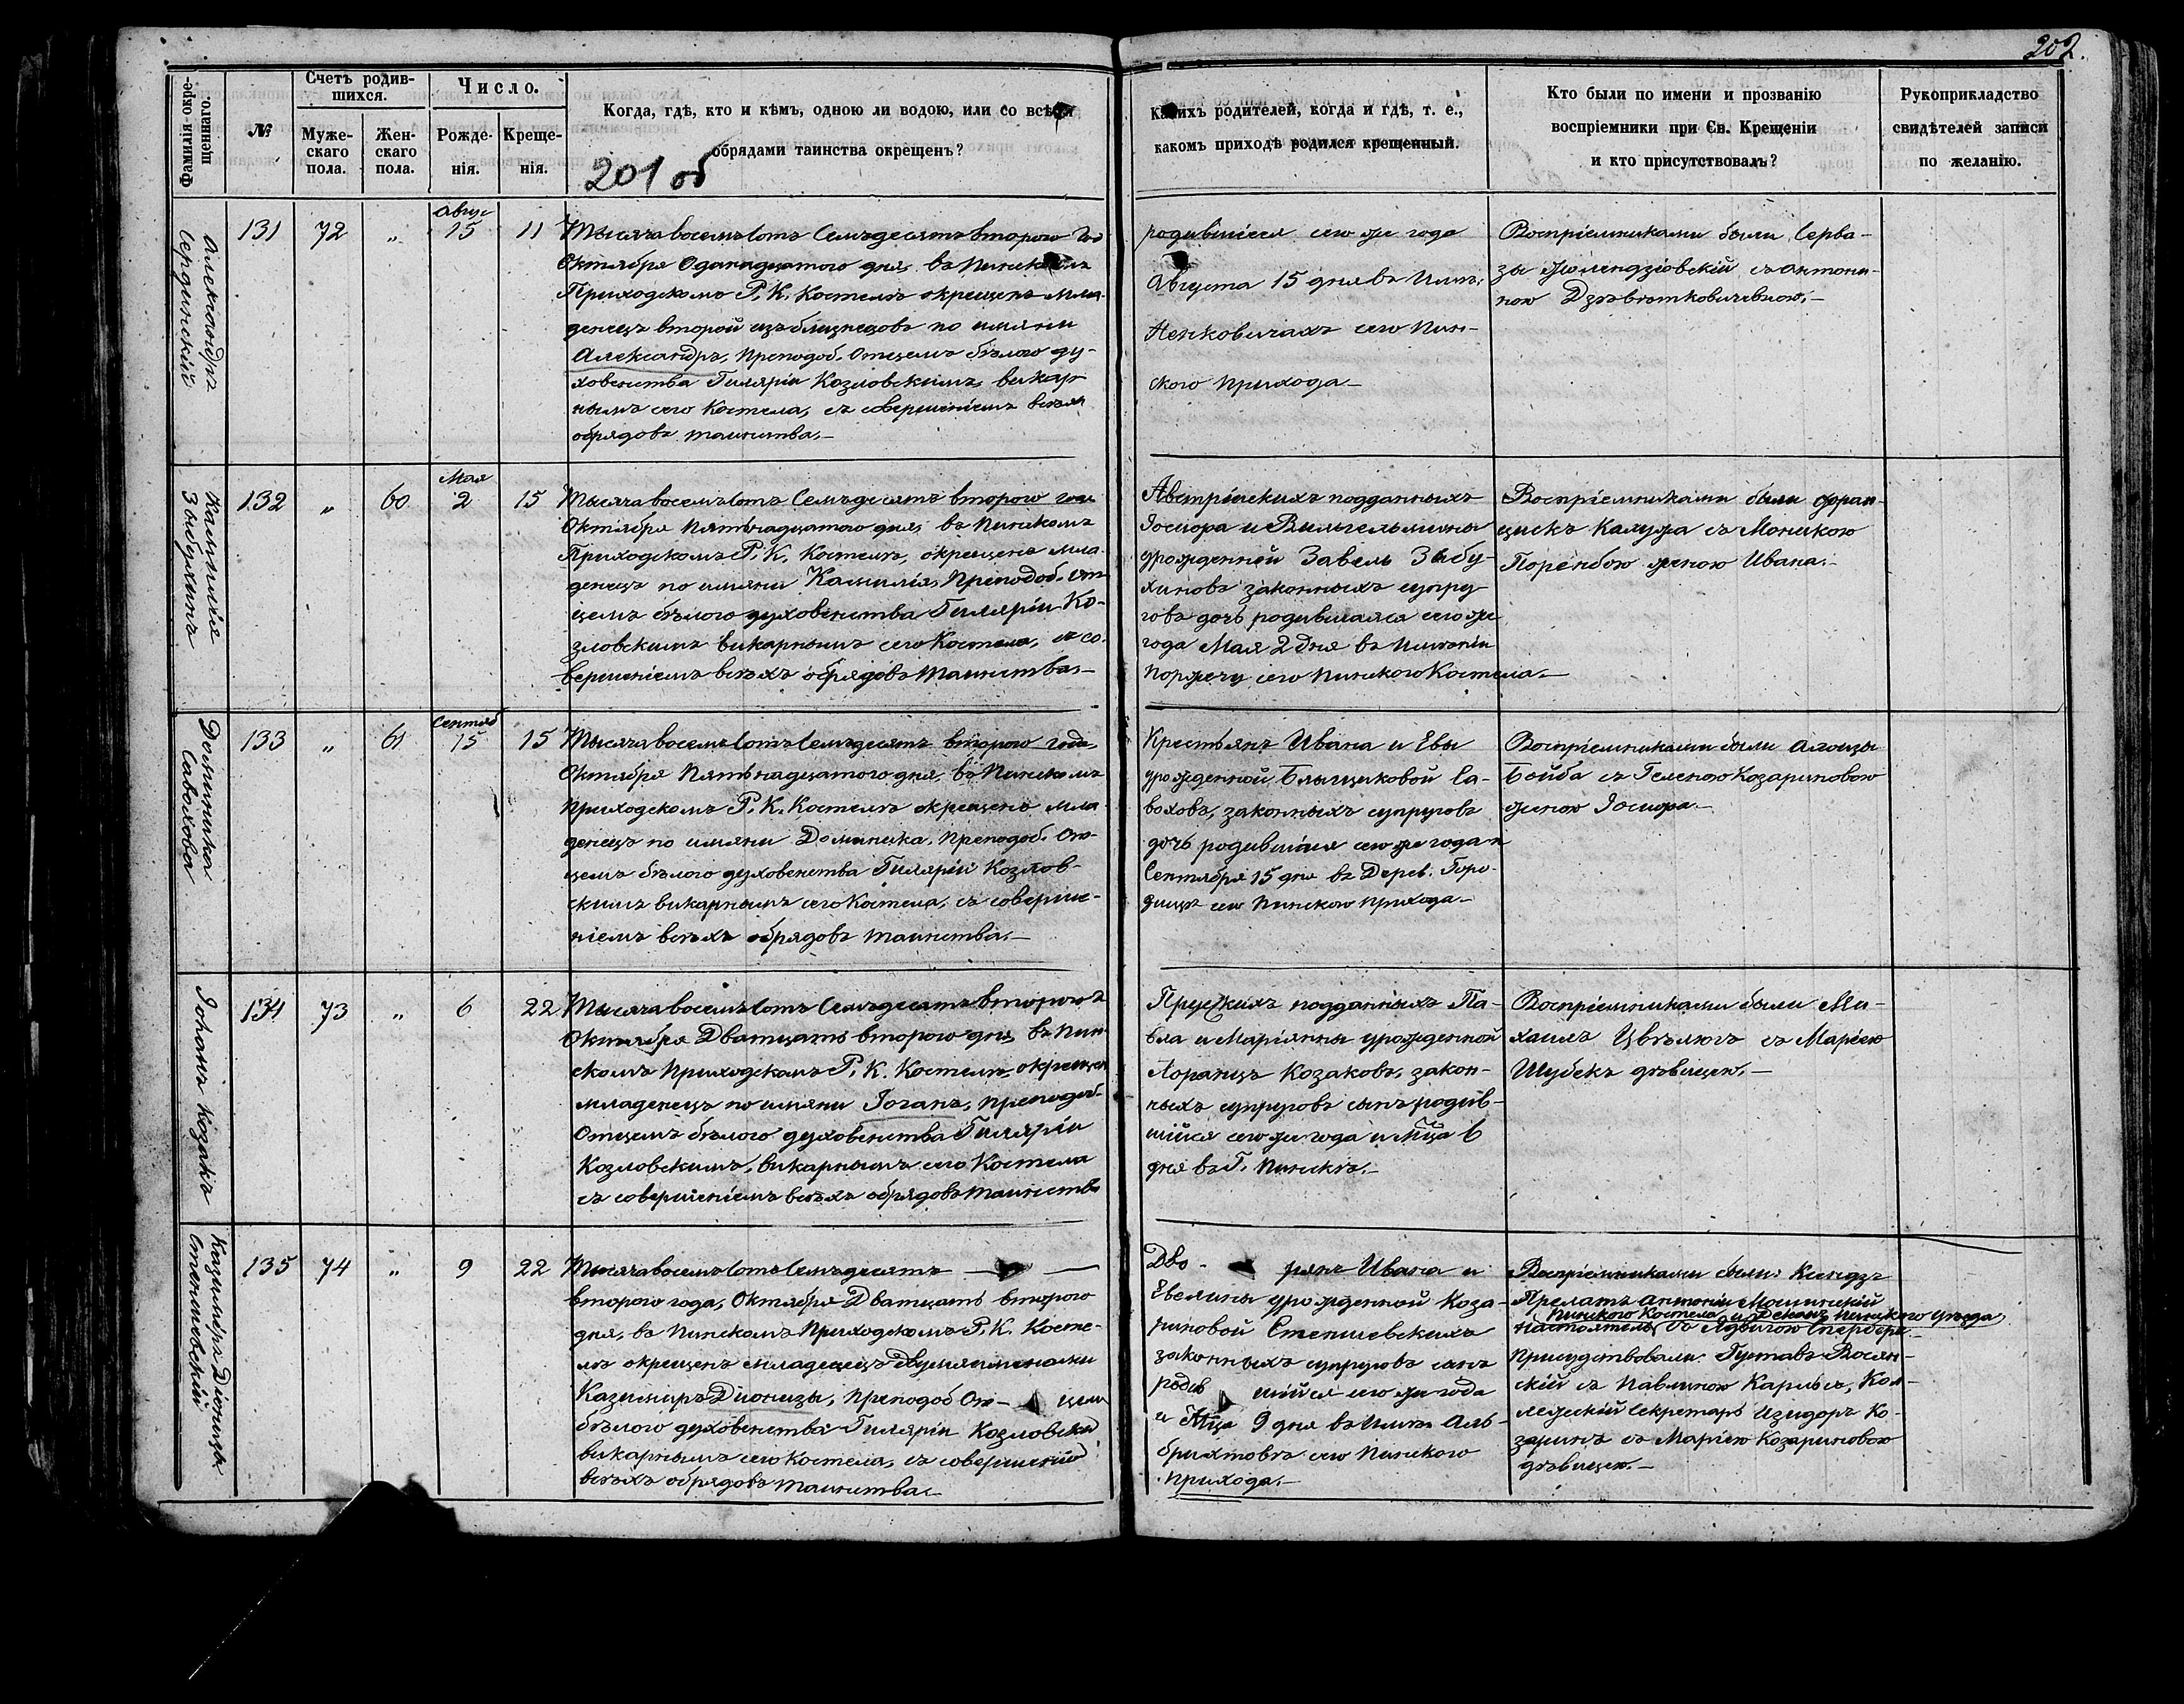 202.
Фамилія окре-
щеннаго.
№
Счетъ родив-
шихся.
Муже-
скаго
пола.
Жен-
скаго
пола.
Число.
Рожде-
нія.
Креще-
нія.
Когда, гдѣ, кто и кѣмъ, одною ли водою, или со всѣми
обрядами таинства окрещенъ?
201 об
Какихъ родителей, когда и гдѣ, т. е.,
какомъ приходѣ родился крещенный.
Кто были по имени и прозванію
воспріемники при Св. Крещеніи
и кто присутствовалъ?
Рукоприкладство
свидѣтелей записи
по желанію.
Александръ
Сердинскій
131
72
„
Авгус
15
11
Тысяча восемьсотъ Семьдесятъ второго Год
Октября Одинадцатого дня, въ Пинскомъ
Приходскомъ Р. К. Костелѣ окрещенъ мла-
денецъ второй изъ близнецовъ по имяни
Александръ, Преподоб. Отецемъ бѣлого ду-
ховенства Гиляріи Козловскимъ викар
нымъ сего Костела, съ совершеніемъ всѣхъ
обрядовъ таинства,—
родившіеся сего же года
Августа 15 дня въ Имѣ.
ского прихода—
Воспріемниками были Серва-
зы съ Антони-
ною
Камилія
Збибухинъ
132
„
60
Мая
2
15
Тысяча восемьсотъ Семьдесятъ второго года
Октября Пятьнадцатого дня, въ Пинскомъ
Приходскомъ Р. К. Костелѣ, окрещенъ мла-
денецъ по имяни Камилія, Преподоб. От-
цемъ бѣлого духовенства Гиляріи Ко-
зловскимъ викарнымъ сего Костела, съ со-
вершеніемъ всѣхъ обрядовъ таинства,—
Австрійскихъ подданныхъ
Іосифа и Вильгельмины
урожденной Завель Збибу-
хиновъ законныхъ супру
говъ дочь родившаяся сего же
года Мая 2 дня въ Имѣніи
Порѣчу сего Пинского Костела.—
Воспріемниками были Фран-
цискъ Калужа съ Моникою
Порембою женою Ивана.—
Доминика
Савохова
133
„
61
Сентяб
15
15
Тысяча восемьсотъ Семьдесятъ второго года
Октября Пятьнадцатого дня, въ Пинскомъ
Приходскомъ Р. К. Костелѣ окрещенъ мла-
денецъ по имяни Доминика, Преподоб. От-
цемъ бѣлого духовенства Гиляріи Козлов-
скимъ викарнымъ сего Костела, съ соверше-
ніемъ всѣхъ обрядовъ таинства.—
Крестьянъ Ивана и Евы
урожденной Блыщиковой Са-
воховъ, законныхъ супруговъ
дочь родившіяся сего же года
Сентября 15 дня въ Дерев. Горо-
дищѣ сего Пинского прихода—
Воспріемниками были Алоизы
Бойба съ Геленою Козариновою
женою Іосифа.—
Іоганъ Козакъ
134
73
„
6
22
Тысяча восемьсотъ Семьдесятъ второго г
Октября Дватцать второго дня, въ Пин-
скомъ Приходскомъ Р. К. Костелѣ, окрещен
младенецъ по имяни Іоганъ, преподоб-
Отцемъ бѣлого духовенства Гиляріи
Козловскимъ, викарнымъ сего Костела
съ совершеніемъ всѣхъ обрядовъ таинства
Прускихъ подданныхъ Па-
вла и Маріянны урожденной
Лоранцъ Козаковъ, закон-
ныхъ супруговъ сынъ родив-
шійся сего же года и Мца 6
дня въ Г. Пинскѣ.—
Воспріемниками были Ми-
хаилъ съ Маріею
Шубекъ дѣвицею.—
Казиміръ Діонизы
Стешевскій
135
74
„
9
22
Тысяча восемьсотъ Семьдесятъ —
второго года, Октября Дватцать второго
дня, въ Пинскомъ Приходскомъ Р. К. Косте-
лѣ окрещенъ младенецъ Двумя именами
Казиміръ Дионизы, преподоб От- цемъ
бѣлого духовенства Гиляріи Козловски
викарнымъ сего Костела, съ совершеніе
всѣхъ обрядовъ таинства.—
Дво- рянъ Ивана и
Евелины урожденной Коза-
риновой Стешевскихъ
законныхъ супруговъ сынъ
родив шійся сего же года
и Мца 9 дня въ Имѣ. Аль-
брихтовѣ сего Пинского
прихода.—
Воспріемниками были: Ксендзъ
Прелатъ Антоній Мошинскій
Пинского Костела и Деканъ Пинского уѣзда
Настоятель съ Ядвигою
Присудствовали: Густавъ
скій съ Павлиною Кол-
лежскій Секретарь Изидоръ Ко-
заринъ съ Маріею Козариновою
дѣвицею.—